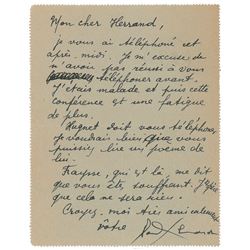 Mon cher Herrand,
je vous ai téléphoné cet
après midi. Je m'excuse de
n'avoir pas réussi à vous
téléphoner avant.
J'étais malade et puis cette
conférence est une fatigue
de plus.
Hugnet doit vous téléphoner,
je voudrais bien que vous
puissiez lire un poème de
lui.
Fraysse, qui est là, me dit
que vous êtes souffrant. J'espère
que cela ne sera rien.
Croyez-moi très amicalement
vôtre